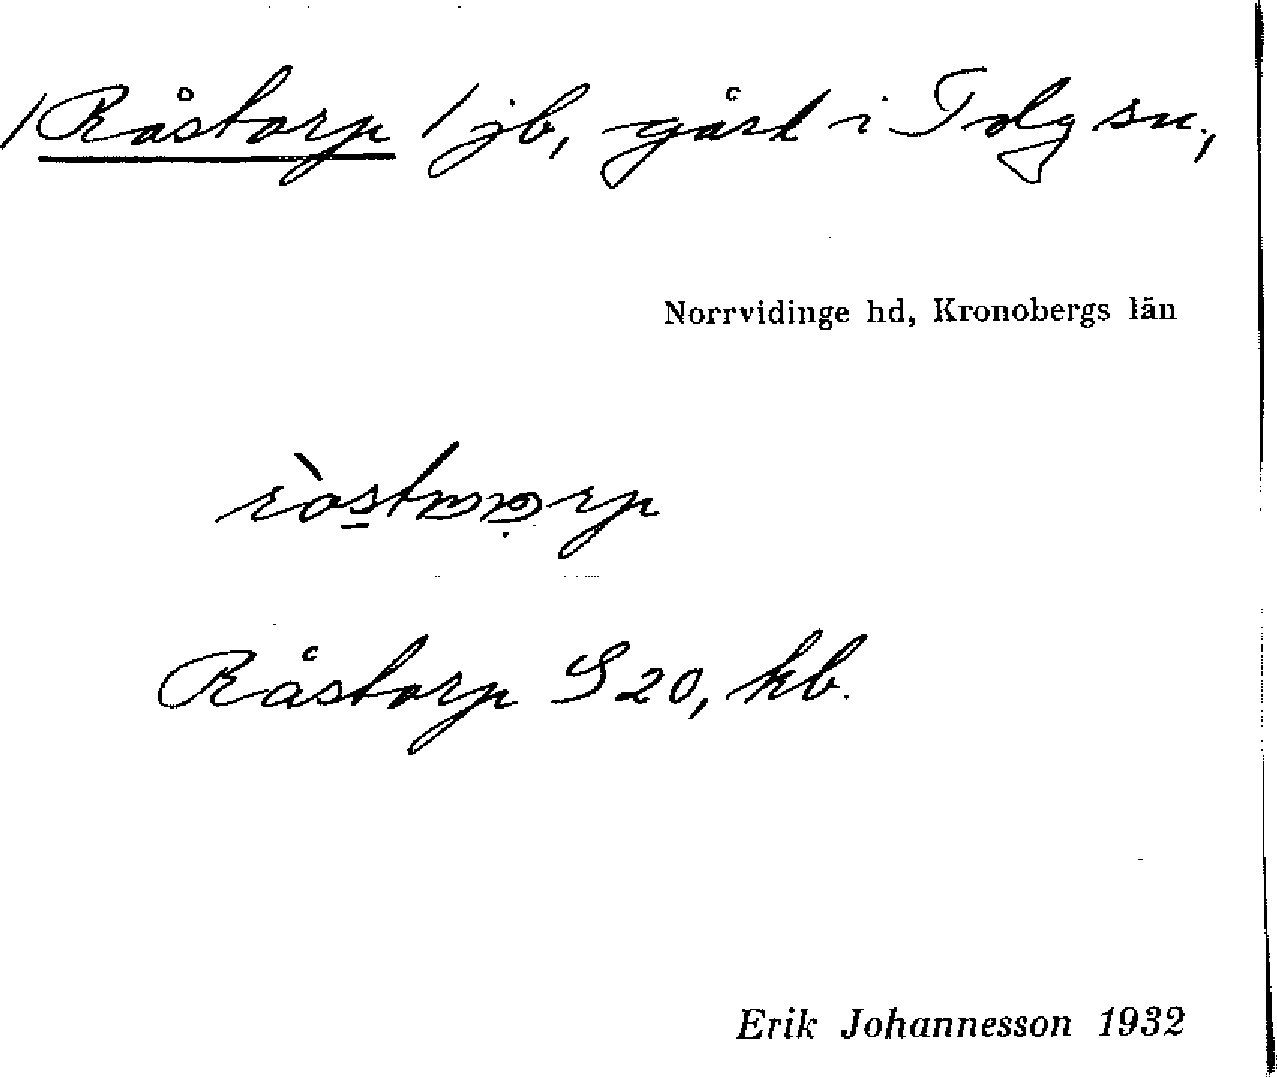 /Råstorp/ jb, gård i Tolg sn.,
Norrvidinge hd, Kronobergs län
Råstorp S 20, kb.
Erik Johannesson 1932